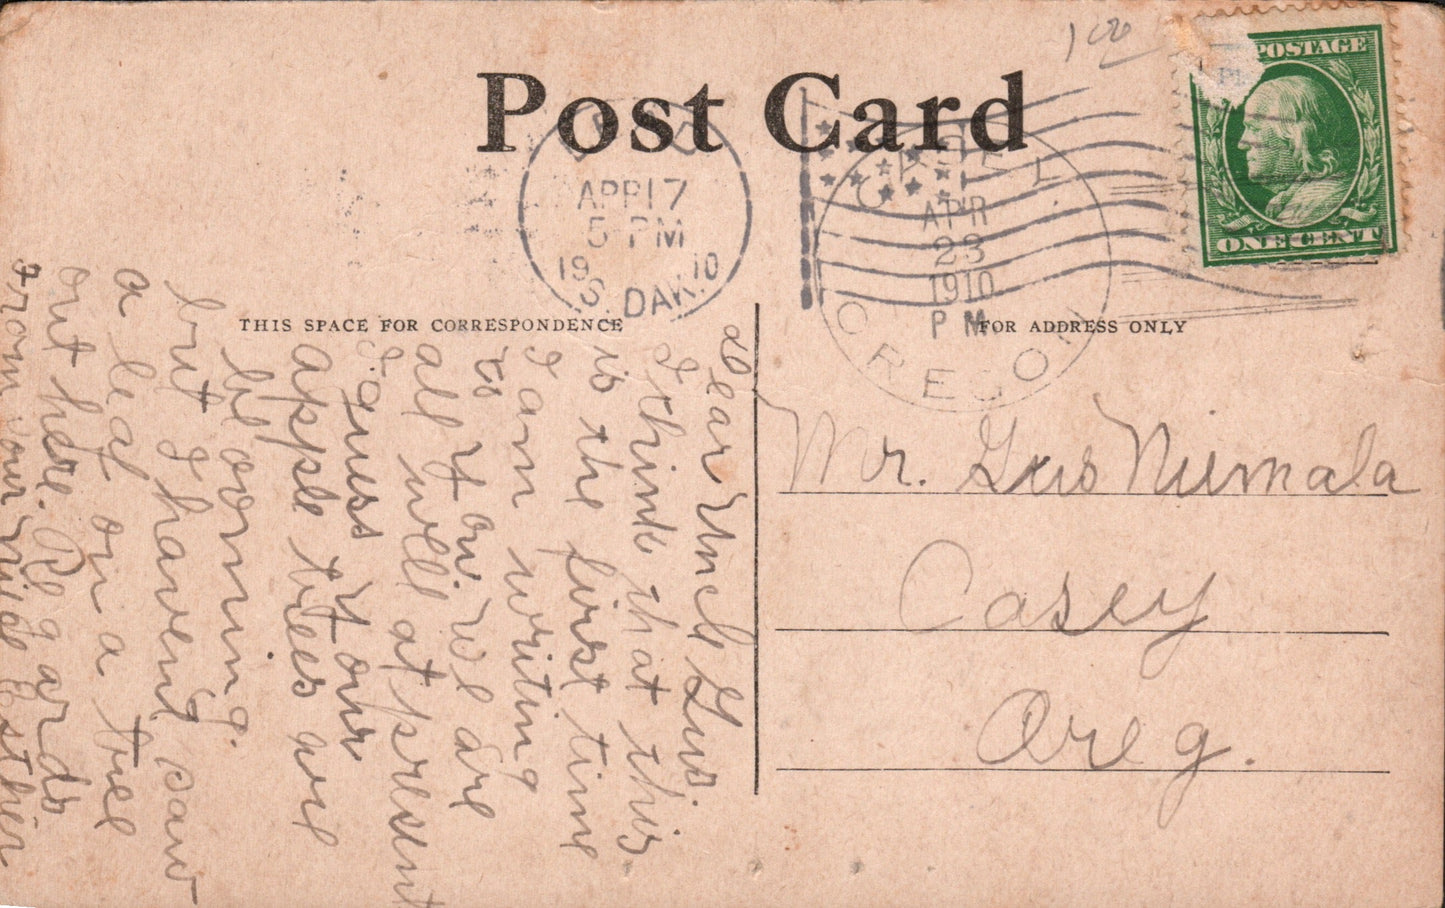 1 00
Post Card
POSTAGE
ONE CENT
LEAD
APR 17
5 PM
19 10
S. DAK.
CASEY
APR
23
1910
P M
OREGON
THIS SPACE FOR CORRESPONDENCE
FOR ADDRESS ONLY
Dear Uncle Gus.
I think that this
is the first time
I am writing
to you we are
all well at present
I guess your
apple trees are
blooming.
but I havent saw
a leaf on a tree
out here. Regards
From your niece Esther
Mr. Gus Niemala
Casey
Oreg.